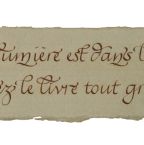 lumière est dans l
z le livre tout gr